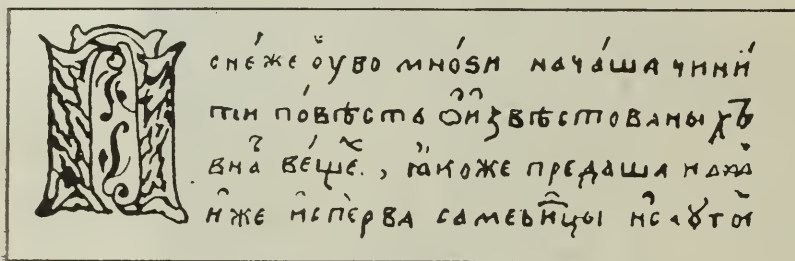 Понéже оуво мнóѕи начáша чинй
ти пóвѣсть ѡ извѣстованы хъ
вна вéще., ꙗкоже предаша на
иже исперва самевицы